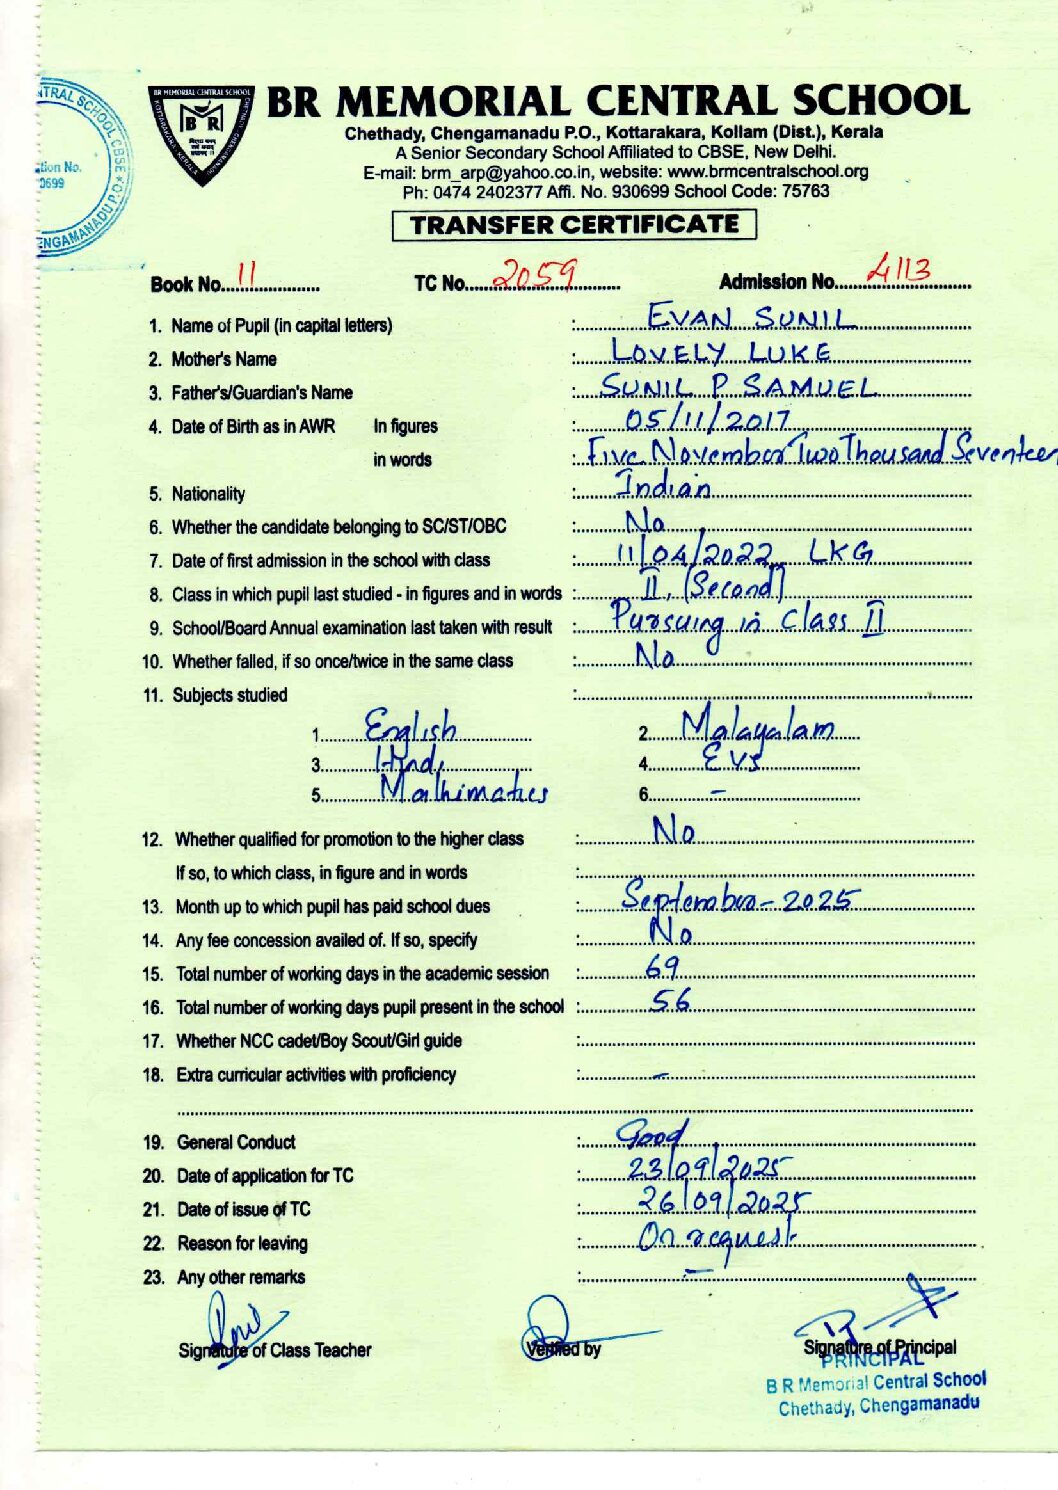 BR MEMORIAL CENTRAL SCHOOL
Chethady, Chengamanadu P.O., Kottarakara, Kollam (Dist.), Kerala
A Senior Secondary School Affiliated to CBSE, New Delhi.
E-mail: brm_arp@yahoo.co.in, website: www.brmcentralschool.org
Ph: 0474 2402377 Affi. No. 930699 School Code: 75763
TRANSFER CERTIFICATE
Book No. 11 TC No. 2059 Admission No. 4113
1. Name of Pupil (in capital letters) : EVAN SUNIL
2. Mother's Name : LOVELY LUKE
3. Father's/Guardian's Name : SUNIL P SAMUEL
4. Date of Birth as in AWR In figures : 05/11/2017
in words : Five November Two Thousand Seventeen
5. Nationality : Indian
6. Whether the candidate belonging to SC/ST/OBC : No
7. Date of first admission in the school with class : 11/04/2022 LKG
8. Class in which pupil last studied - in figures and in words : II, (Second)
9. School/Board Annual examination last taken with result : Pursuing in Class II
10. Whether falled, if so once/twice in the same class : No
11. Subjects studied :
1. English 2. Malayalam
3. Hindi 4. EVS
5. Mathimatics 6. -
12. Whether qualified for promotion to the higher class : No
If so, to which class, in figure and in words :
13. Month up to which pupil has paid school dues : September - 2025
14. Any fee concession availed of. If so, specify : No
15. Total number of working days in the academic session : 69
16. Total number of working days pupil present in the school : 56
17. Whether NCC cadet/Boy Scout/Girl guide :
18. Extra curricular activities with proficiency : -
19. General Conduct : Good
20. Date of application for TC : 23/09/2025
21. Date of issue of TC : 26/09/2025
22. Reason for leaving : On request
23. Any other remarks : -
Signature of Class Teacher Verified by Signature of Principal
PRINCIPAL
B R Memorial Central School
Chethady, Chengamanadu